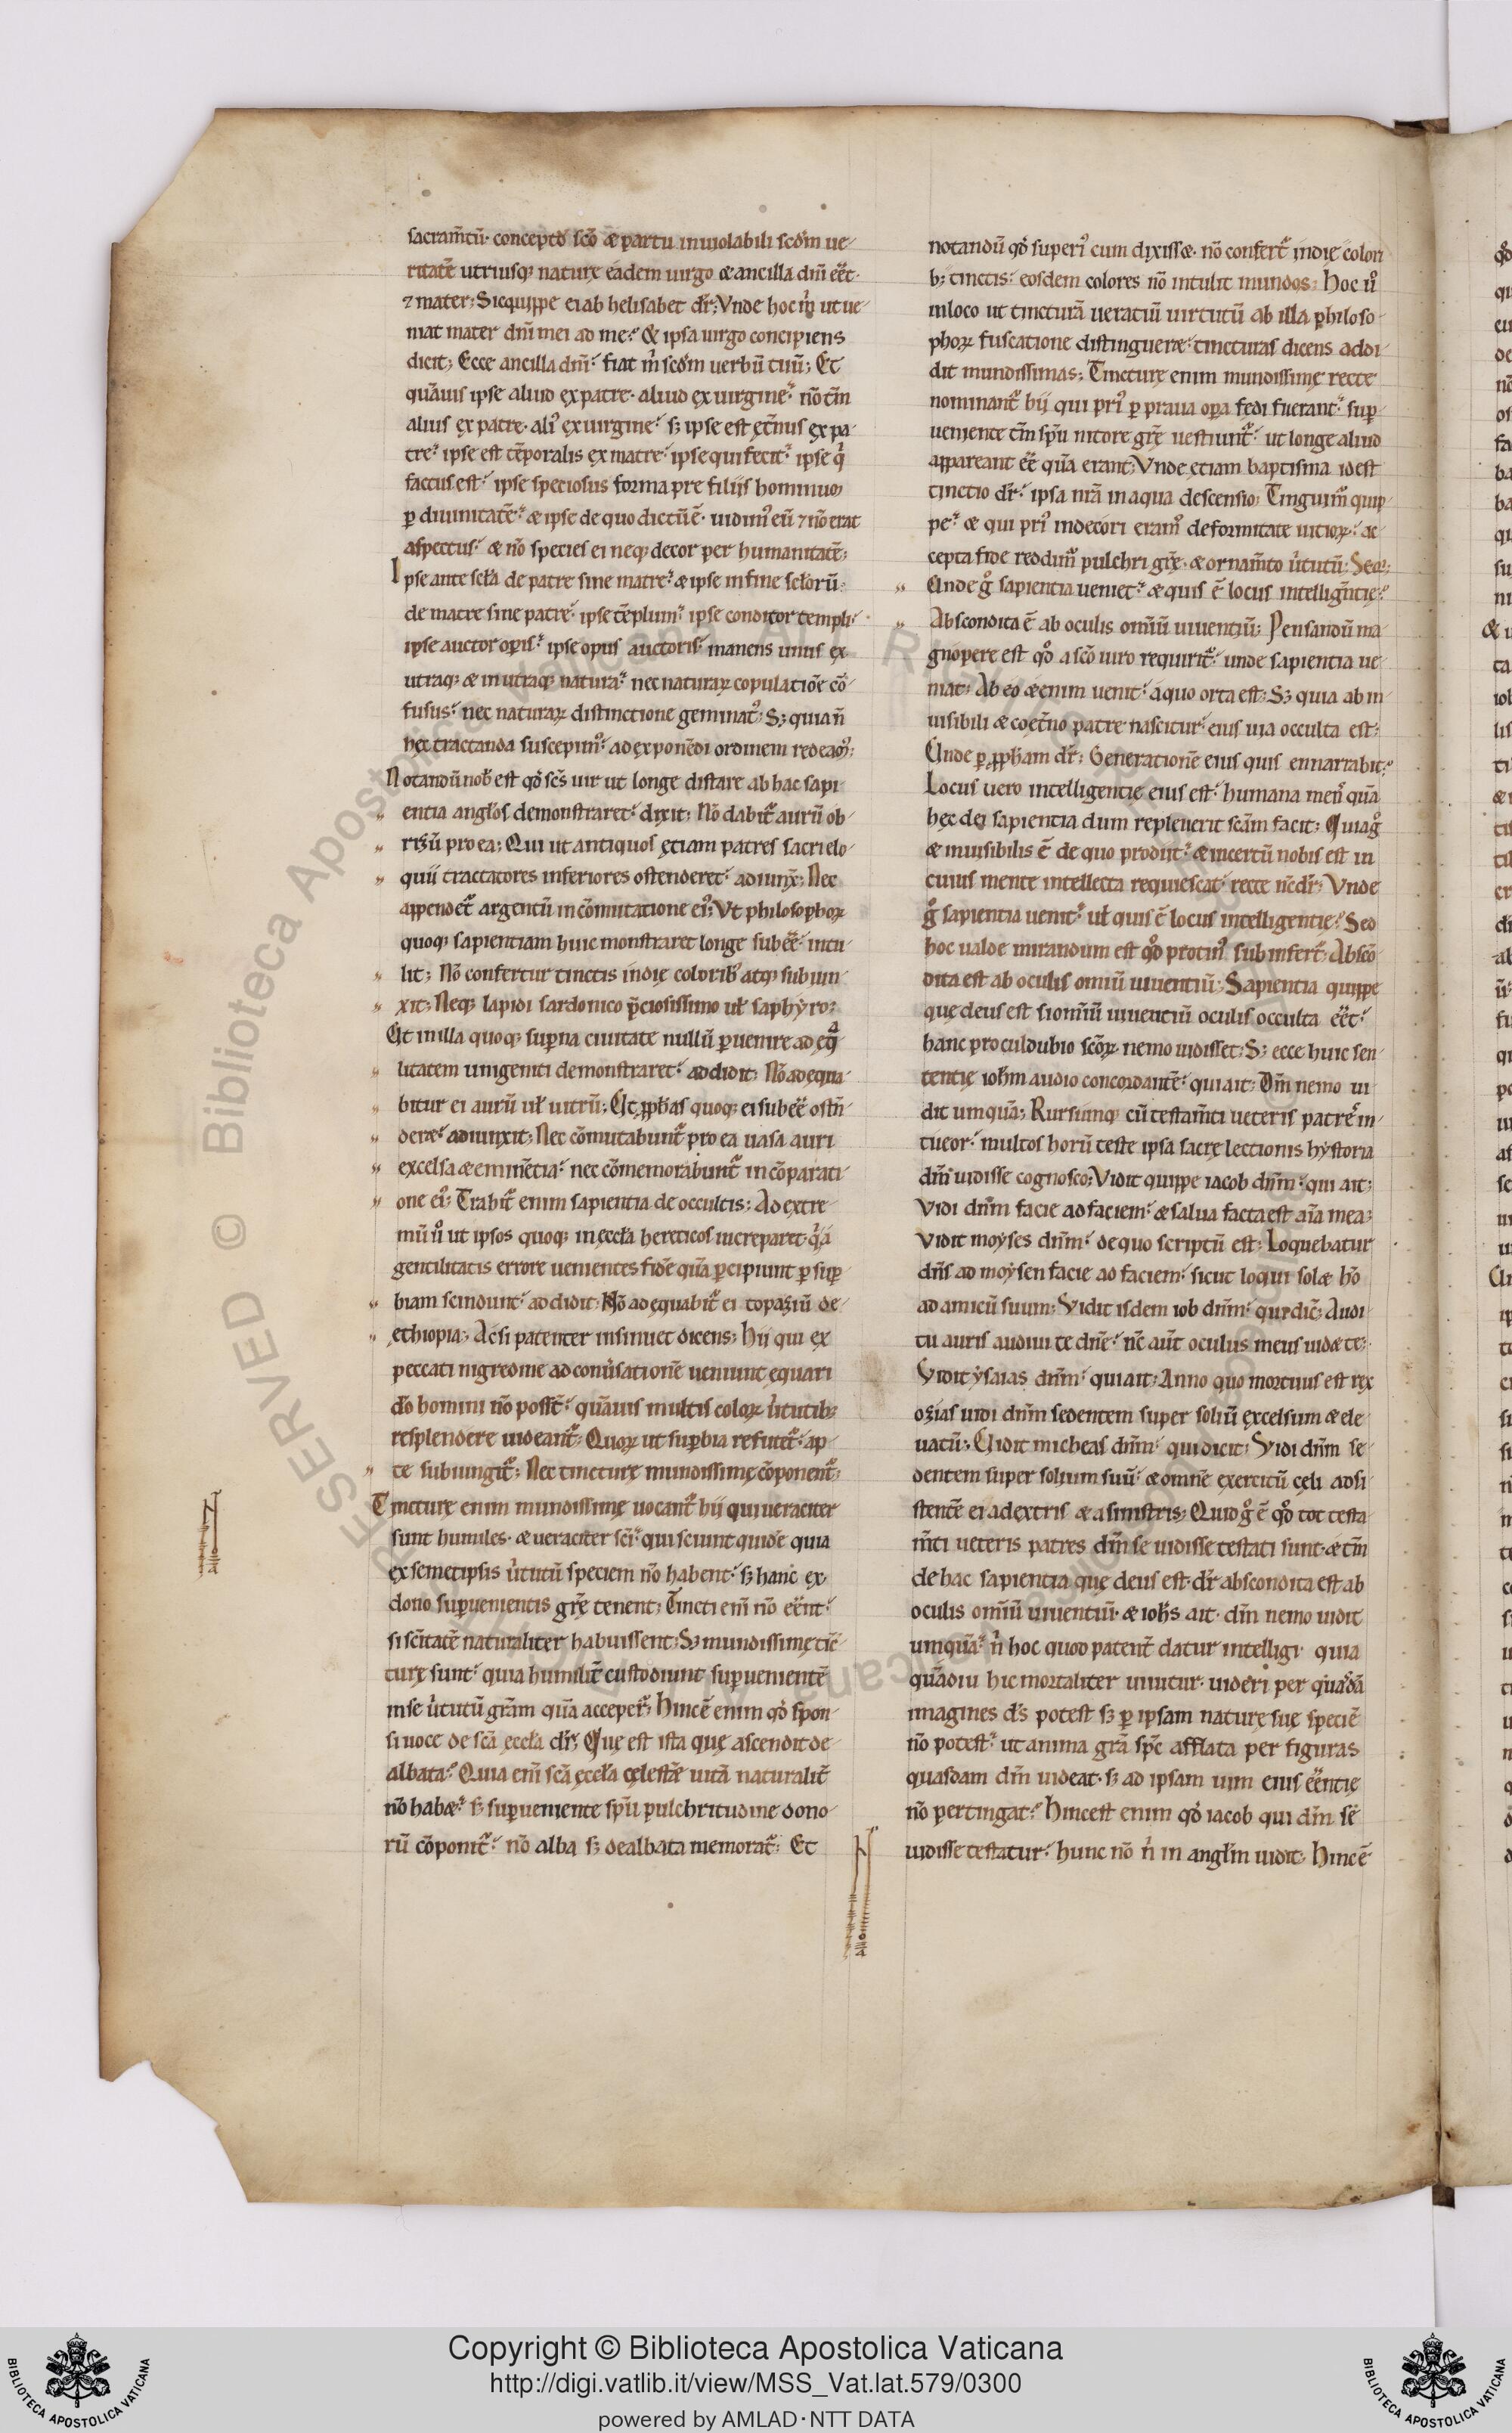 sacram̄tū· concepto scō & partu inuiolabili scd̄m ue-
ritatē utriusq; naturę eadem uirgo & ancilla dn̄i eēt·
⁊ mater; Sic quippe ei ab helisabet dr̄; Vnde hoc m̄ ut ue-
niat mater dn̄i mei ad me; & ipsa uirgo concipiens
dicit; Ecce ancilla dn̄i; fiat m̄ scd̄m uerbū tuū; Et
quāuis ipse aliud ex patre· aliud ex uirgine; nō tn̄
alius ex patre· ali' ex uirgine; s; ipse est et̄nus ex pa-
tre; ipse est tēporalis ex matre; ipse qui fecit; ipse q̄
factus est; ipse speciosus forma pre filijs hominum
p diuinitatē; & ipse de quo dictū ē· uidim' eū ⁊ nō erat
aspectus; & nō species ei neq; decor per humanitatē;
Ipse ante sc̄la de patre sine matre; & ipse in fine sc̄lorū;
de matre sine patre; ipse tēplum; ipse conditor templi·
ipse auctor opis; ipse opus auctoris; manens unus ex
utraq; & in utraq; natura; nec naturaꝝ copulatiōe cō-
fusus; nec naturaꝝ distinctione geminat'; S; quia n̄
hęc tractanda suscepim'; ad exponēdi ordinem redeam';
Notandū nob̄ est qd̄ sc̄s uir ut longe distare ab hac sapi-
entia anglos demonstraret; dixit; Nō dabit̄ aurū ob-
rizū pro ea; Qui ut antiquos etiam patres sacri elo-
quii tractatores inferiores ostenderet; adiunx̄; Nec
appendet̄ argentū in cōmutatione ei'; Vt philosophoꝝ
quoq; sapientiam huic monstraret longe sub eē; intu-
lit; Nō confertur tinctis indię colorib' atq; subiun-
xit; Neq; lapidi sardonico p̄ciosissimo uł saphyro;
Et in illa quoq; suꝑna ciuitate nullū ꝑuenire ad eq̄-
litatem unigeniti demonstraret; addidit; Nō adequa-
bitur ei aurū uł uitrū; Et ꝓph̄as quoq; ei sub eē ostn̄-
deret; adiunxit; Nec cōmutabunt̄ pro ea uasa auri
excelsa & eminētia; nec cōmemorabunt̄ in cōparati-
one ei'; Trahit̄ enim sapientia de occultis; Ad extre-
mū ū ut ipsos quoq; in eccła hereticos increparet· q̄ a
gentilitatis errore uenientes fidē quā ꝑcipiunt ꝑ suꝑ-
biam scindunt; addidit; Nō adequabit̄ ei topaziū de
ethiopia; Ac si patenter insinuet dicens; Hii qui ex
peccati nigredine ad conūsationē ueniunt equari
dō homini nō possē; quāuis multis coloꝝ ūtutib;
resplendere uideant̄; Quoꝝ ut suꝑbia refutet̄; ap-
te subiungit̄; Nec tincture mundissimę cōponent̄;
Tincturę enim mundissimę uocant̄ hij qui ueraciter
sunt humiles· & ueraciter sc̄i; qui sciunt quidē quia
ex semetipsis ūtutū speciem nō habent; s; hanc ex
dono suꝑuenientis grę̄ tenent; Tincti em̄ nō eēnt;
si sc̄itatē naturaliter habuissent; S; mundissimę tīc-
turę sunt; quia humilit̄ custodiunt suꝑuenientē
in se ūtutū grām quā acceper̄; Hinc ē enim qd̄ spon-
si uoce de scā eccła dr̄; Quę est ista quę ascendit de-
albata; Quia em̄ scā ęccła cęlestē uitā naturalit̄
nō habet; s; suꝑueniente spū pulchritudine dono-
rū cōponit̄; nō alba s; dealbata memorat̄; Et
notandū qd̄ superi' cum dixisset· nō confert̄ indię colori-
b; tinctis; eosdem colores nō intulit mundos; Hoc ū
in loco ut tincturā ueraciū uirtutū ab illa philoso-
phoꝝ fuscatione distingueret; tincturas dicens addi-
dit mundissimas; Tincturę enim mundissimę recte
nominant̄ hij qui pri' ꝑ praua opa fedi fuerant; suꝑ-
ueniente tn̄ spū nitore grę̄ uestiunt̄; ut longe aliud
appareant eē quā erant; Vnde etiam baptisma idest
tinctio dr̄; ipsa nrā in aqua descensio; Tinguim' quip-
pe; & qui pri' indecori eram' deformitate uitioꝝ; ac-
cepta fide reddim' pulchri grę̄· & ornam̄to ūtutū; Seqr̄;
Vnde g° sapientia ueniet; & quis ē locus intelliḡntię;
Abscondita ē ab oculis omiū uiuentiū; Pensandū ma-
gnopere est qd̄ a scō uiro requirit̄; unde sapientia ue-
niat; Ab eo &enim uenit; a quo orta est; S; quia ab in-
uisibili & coet̄no patre nascitur; eius uia occulta est;
Vnde ꝑ ꝓph̄am dr̄; Generationē eius quis ennarrabit;
Locus uero intelligentię eius est; humana men̄ quā
hęc dei sapientia dum repleuerit scām facit; Quia g°
& inuisibilis ē de quo prodiit; & incertū nobis est in
cuius mente intellecta requiescat; recte n̄c dr̄; Vnde
g° sapientia uenit; uł quis ē locus intelligentię; Sed
hoc ualde mirandum est qd̄ protin' subinfert̄; Abscō-
dita est ab oculis omiū uiuentiū; Sapientia quippe
que deus est si omiū uiuentiū oculis occulta eēt;
hanc proculdubio scōꝝ nemo uidisset; S; ecce huic sen-
tentię ioh̄m audio concordantē; qui ait; Dm̄ nemo ui-
dit umquā; Rursumq; cū testam̄ti ueteris patrēs in-
tueor; multos horū teste ipsa sacrę lectionis hystoria
dn̄m uidisse cognosco; Vidit quippe iacob dn̄m; qui ait;
Vidi dn̄m facie ad faciem; & salua facta est aīa mea;
Vidit moyses dn̄m; de quo scriptū est; Loquebatur
dn̄s ad moysen facie ad faciem; sicut loqui solet hō
ad amicū suum; Vidit isdem iob dn̄m; qui dic̄; Audi-
tu auris audiui te dn̄e; n̄c aūt oculus meus uidet te;
Vidit ysaias dn̄m; qui ait; Anno quo mortuus est rex
ozias uidi dn̄m sedentem super soliū excelsum & ele-
uatū; Vidit micheas dn̄m; qui dicit; Vidi dn̄m se-
dentem super solium suū; & omnē exercitū cęli adsi-
stentē ei a dextris & a sinistris; Quid g° ē qd̄ tot testa-
m̄ti ueteris patres dm̄ se uidisse testati sunt· & tn̄
de hac sapientia que deus est· dr̄ abscondita est ab
oculis omiū uiuentiū· & ioh̄s ait· dm̄ nemo uidit
umquā; n̄ hoc quod patent̄ datur intelligi quia
quādiu hic mortaliter uiuitur· uideri per quasdā
imagines ds̄ potest s; ꝑ ipsam naturę suę speciē
nō potest; ut anima grā spc̄ afflata per figuras
quasdam dm̄ uideat· s; ad ipsam uim eius eēntię
nō pertingat; Hinc est enim qd̄ iacob qui dm̄ se
uidisse testatur; hunc nō n̄ in angłm uidit; Hinc ē
Copyright © Biblioteca Apostolica Vaticana
http://digi.vatlib.it/view/MSS_Vat.lat.579/0300
powered by AMLAD·NTT DATA
BIBLIOTECA APOSTOLICA VATICANA
BIBLIOTECA APOSTOLICA VATICANA